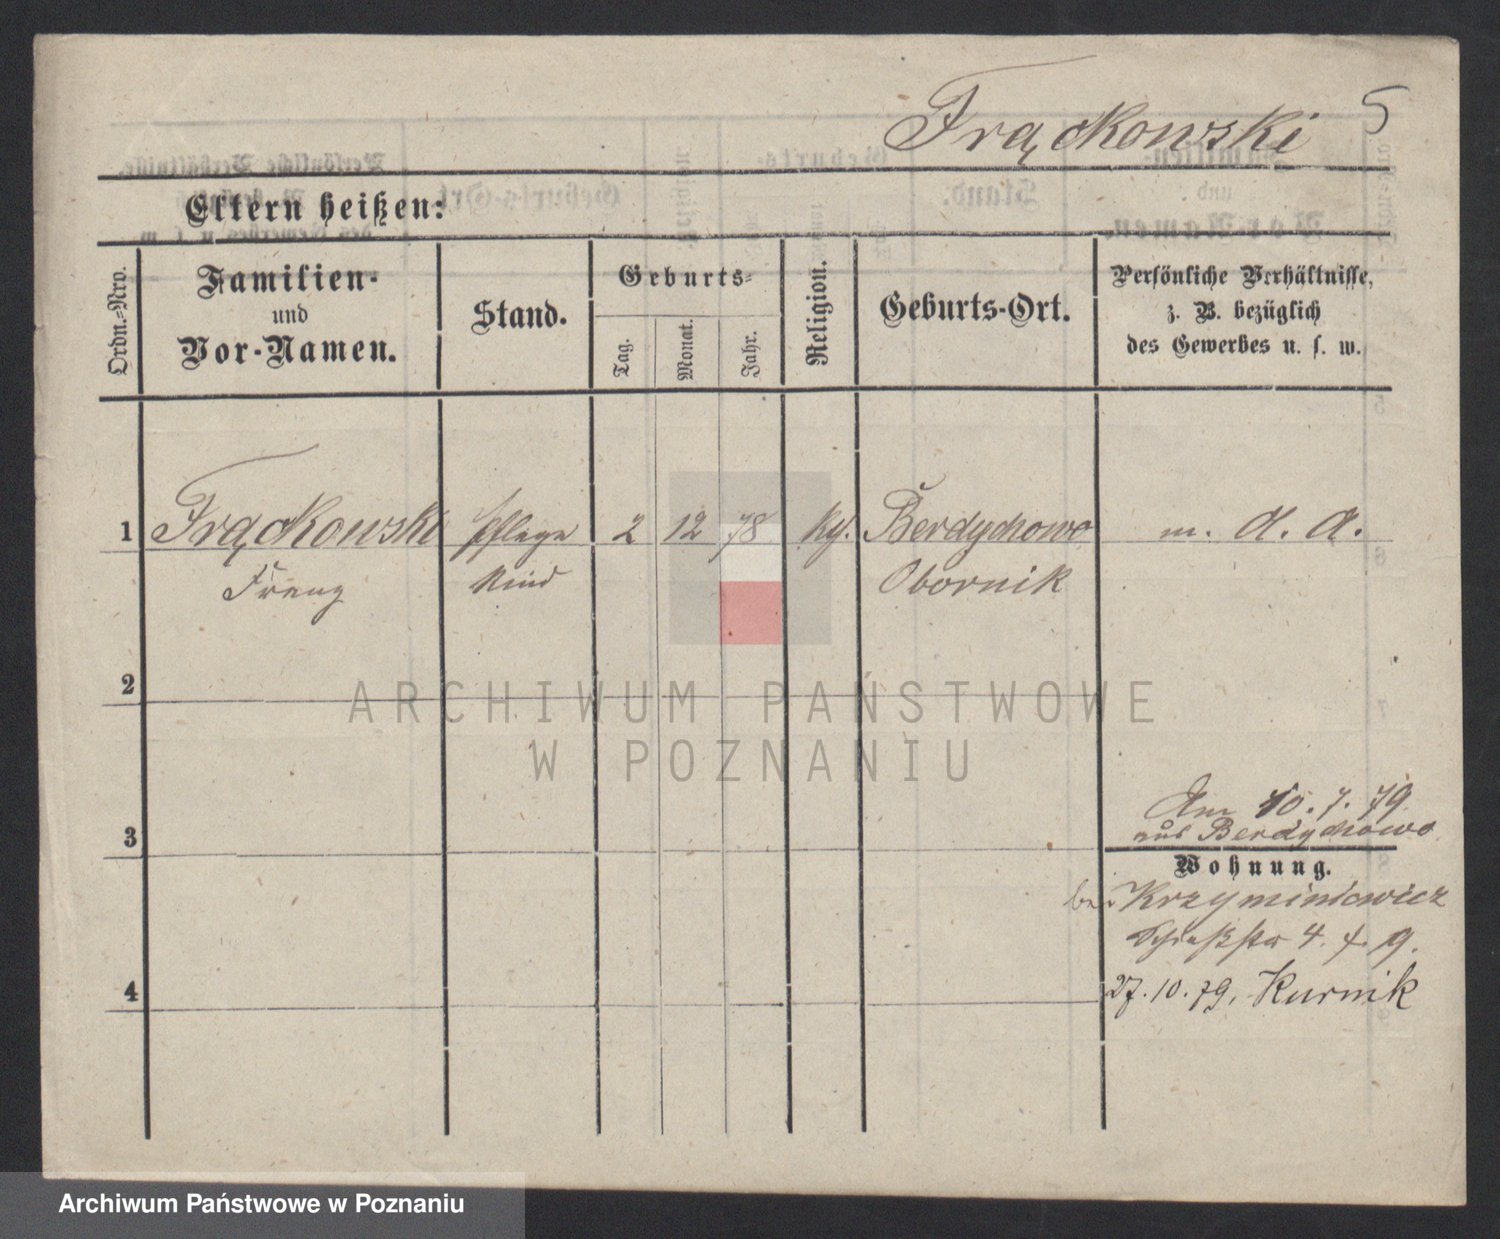 Frąckowski 5
Eltern heißen:
Ordn.-Nro.
Familien-
und
Vor-Namen.
Stand.
Geburts-
Tag.
Monat.
Jahr.
Religion.
Geburts-Ort.
Persönliche Verhältnisse,
z. B. bezüglich
des Gewerbes u. s. w.
1 Frąckowski pflege 2 12 78 Berdychowo m. d. A.
Franz kind Obornik
2
ARCHIWUM PAŃSTWOWE
W POZNANIU
Am 10. 7. 79
aus Berdychowo
3
Wohnung.
bei Krzyminiewicz
4
27. 10. 79. Kurnik
Archiwum Państwowe w Poznaniu